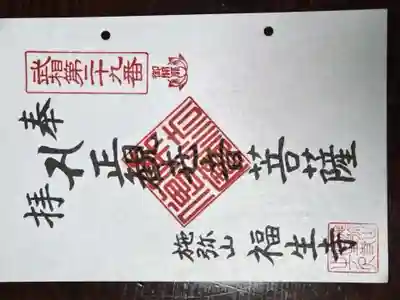 武相第二十九番
奉
拝礼
正観世音菩薩
施弥山 福生寺